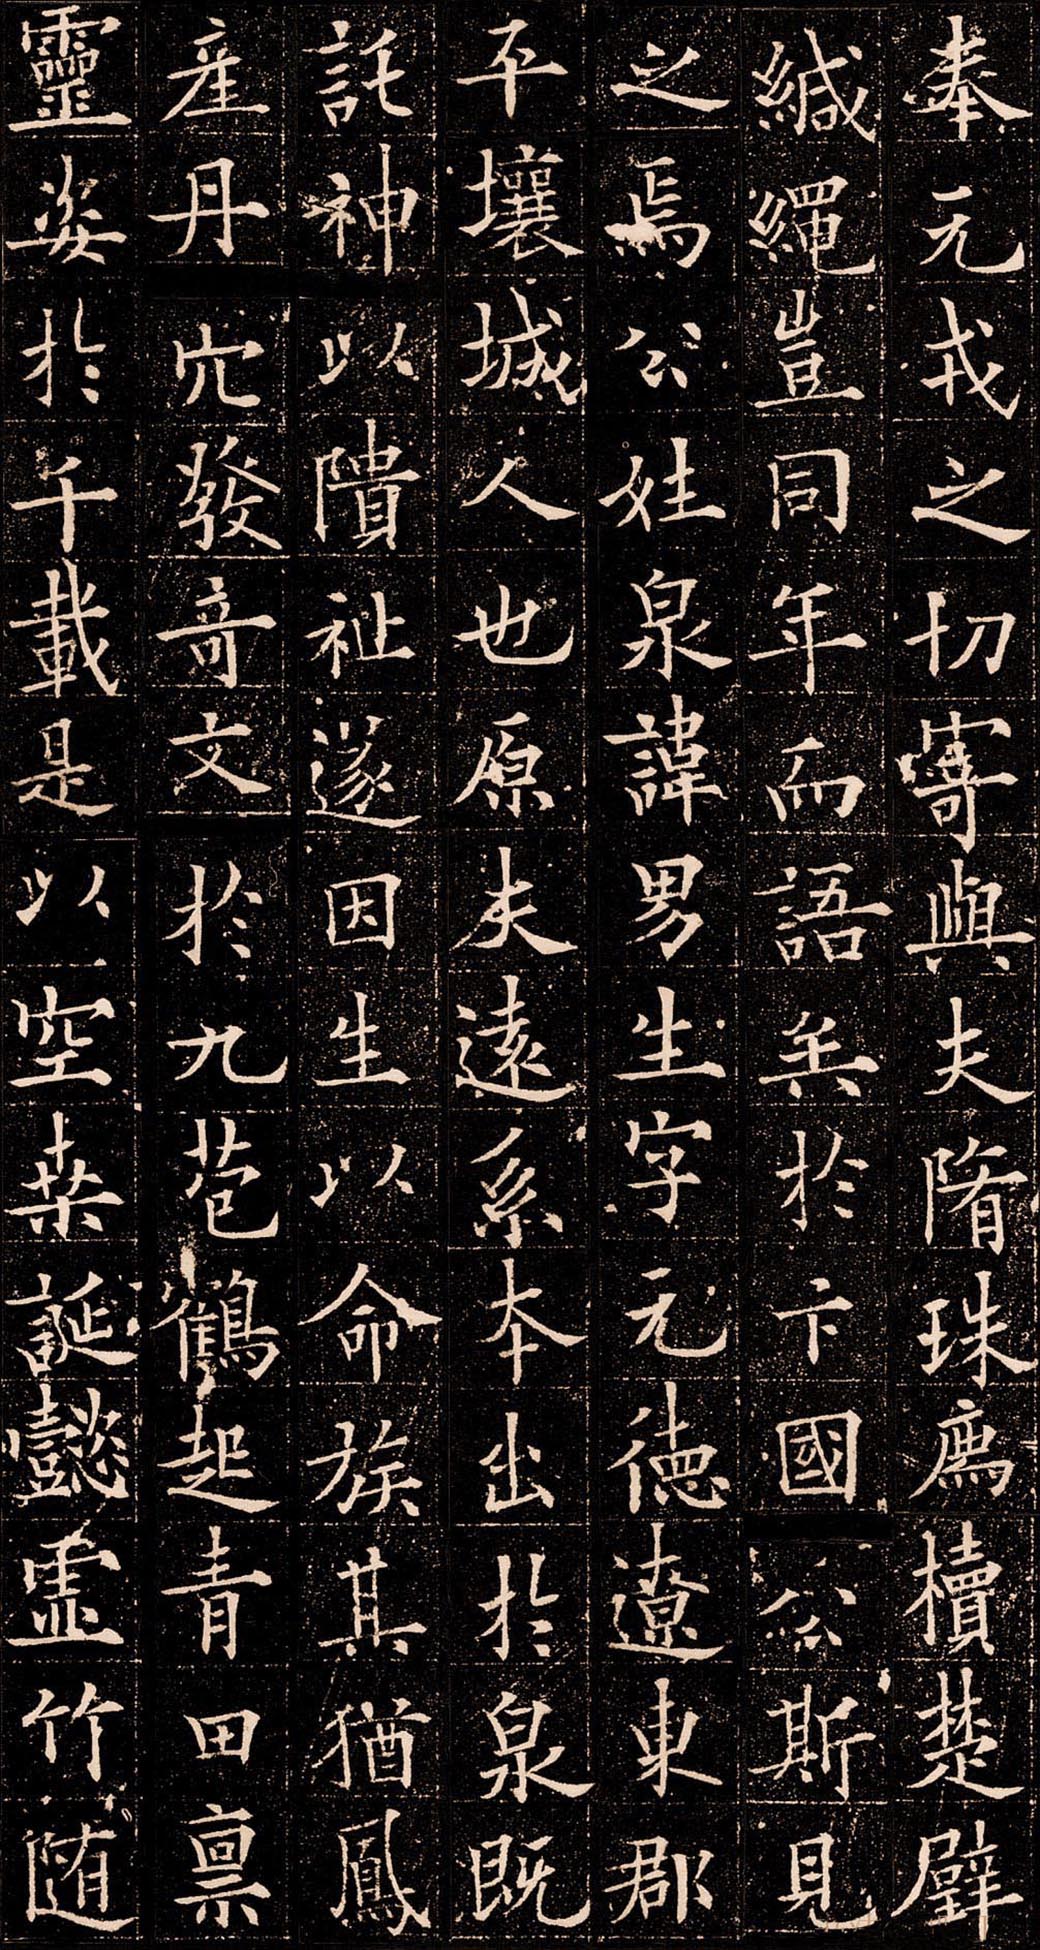 奉元戎之切寄與夫隋珠薦櫝楚璧
緘繩豈同年而語矣於卞國公斯見
之焉公姓泉諱男生字元德遼東郡
平壤城人也原夫遠系本出於泉既
託神以隤祉遂因生以命族其猶鳳
產丹穴發奇文於九苞鶴起青田稟
靈姿於千載是以空桑誕懿虛竹随